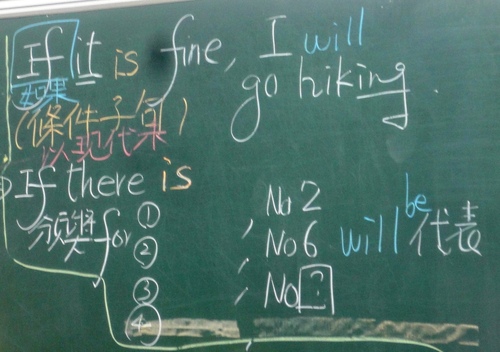 If it is fine, I will
如果 go hiking.
(條件子句)
以現代果
If there is
頒獎 for ① , No 2
② , No 6 will be 代表
③ , No ?
④